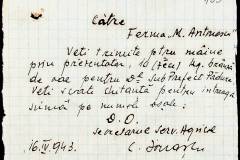 Către
Ferma „M. Antonescu"
Veți trimite ptru mâine
prin prezentator, 10 (zece) kg. brânză
de oae pentru Dl Sub Prefect Pădure
Veți scoate chitanță pentru întreaga
sumă pe numele d-sale:
D. O.
Secretarul Serv. Agricol
16.IV.943.